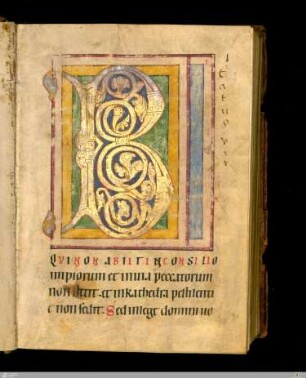 B
eatus vir
QVI NON ABIIT IN CONSILIO
impiorum et in uia peccatorum
non stetit. et in kathedra pestilenti
e non sedit. Sed in lege domini uo